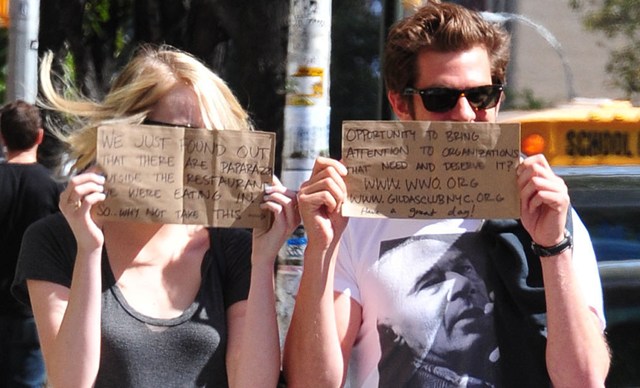 WE JUST FOUND OUT
THAT THERE ARE PAPARAZZI
OUTSIDE THE RESTAURANT
WE WERE EATING IN.
SO... WHY NOT TAKE THIS →
OPPORTUNITY TO BRING
ATTENTION TO ORGANIZATIONS
THAT NEED AND DESERVE IT?
WWW.WWO.ORG
WWW.GILDASCLUBNYC.ORG
Have a great day!
SCHOOL